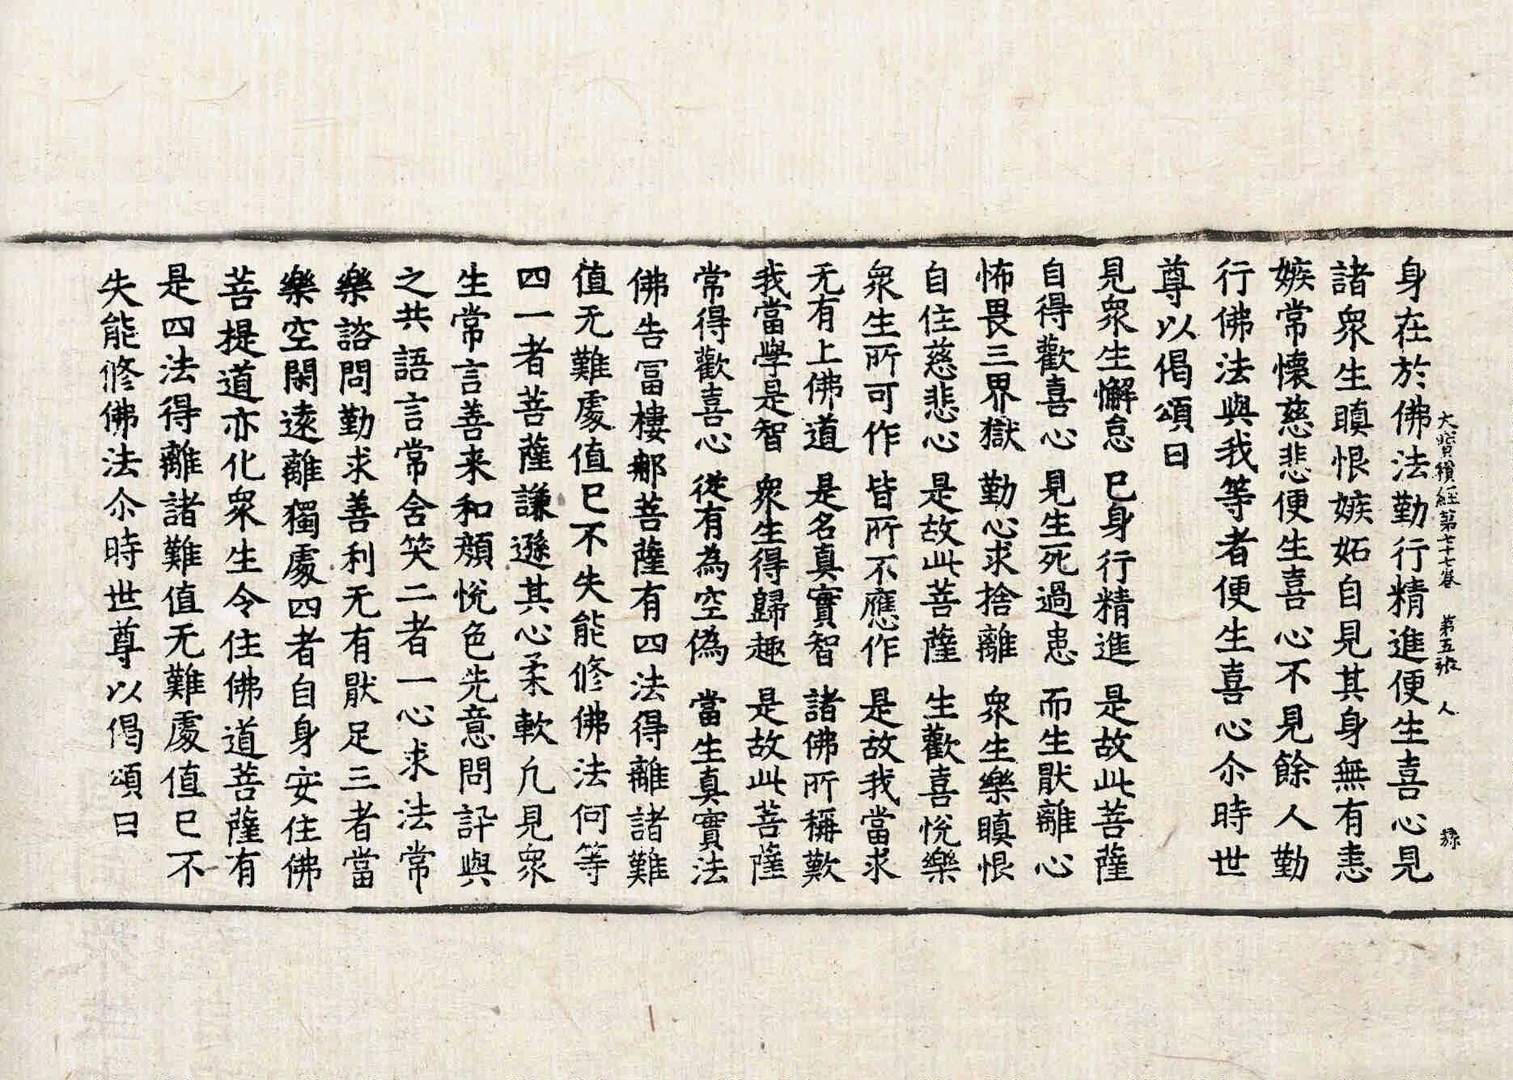 大寳積經第七十七卷 第五張 人
身在於佛法勤行精進便生喜心見
諸衆生瞋恨嫉妬自見其身無有恚
嫉常懷慈悲便生喜心不見餘人勤
行佛法與我等者便生喜心尒時世
尊以偈頌曰
見衆生懈怠 已身行精進 是故此菩薩
自得歡喜心 見生死過患 而生猒離心
怖畏三界獄 勤心求捨離 衆生樂瞋恨
自住慈悲心 是故此菩薩 生歡喜悅樂
衆生所可作 皆所不應作 是故我當求
无有上佛道 是名真實智 諸佛所稱歎
我當學是智 衆生得歸趣 是故此菩薩
常得歡喜心 從有為空偽 當生真實法
佛告冨樓郍菩薩有四法得離諸難
值无難處值已不失能修佛法何等
四一者菩薩謙遜其心柔軟凢見衆
生常言善来和顏悅色先意問訊與
之共語言常含笑二者一心求法常
樂諮問勤求善利无有猒足三者當
樂空閑遠離獨處四者自身安住佛
菩提道亦化衆生令住佛道菩薩有
是四法得離諸難值无難處值已不
失能修佛法尒時世尊以偈頌曰